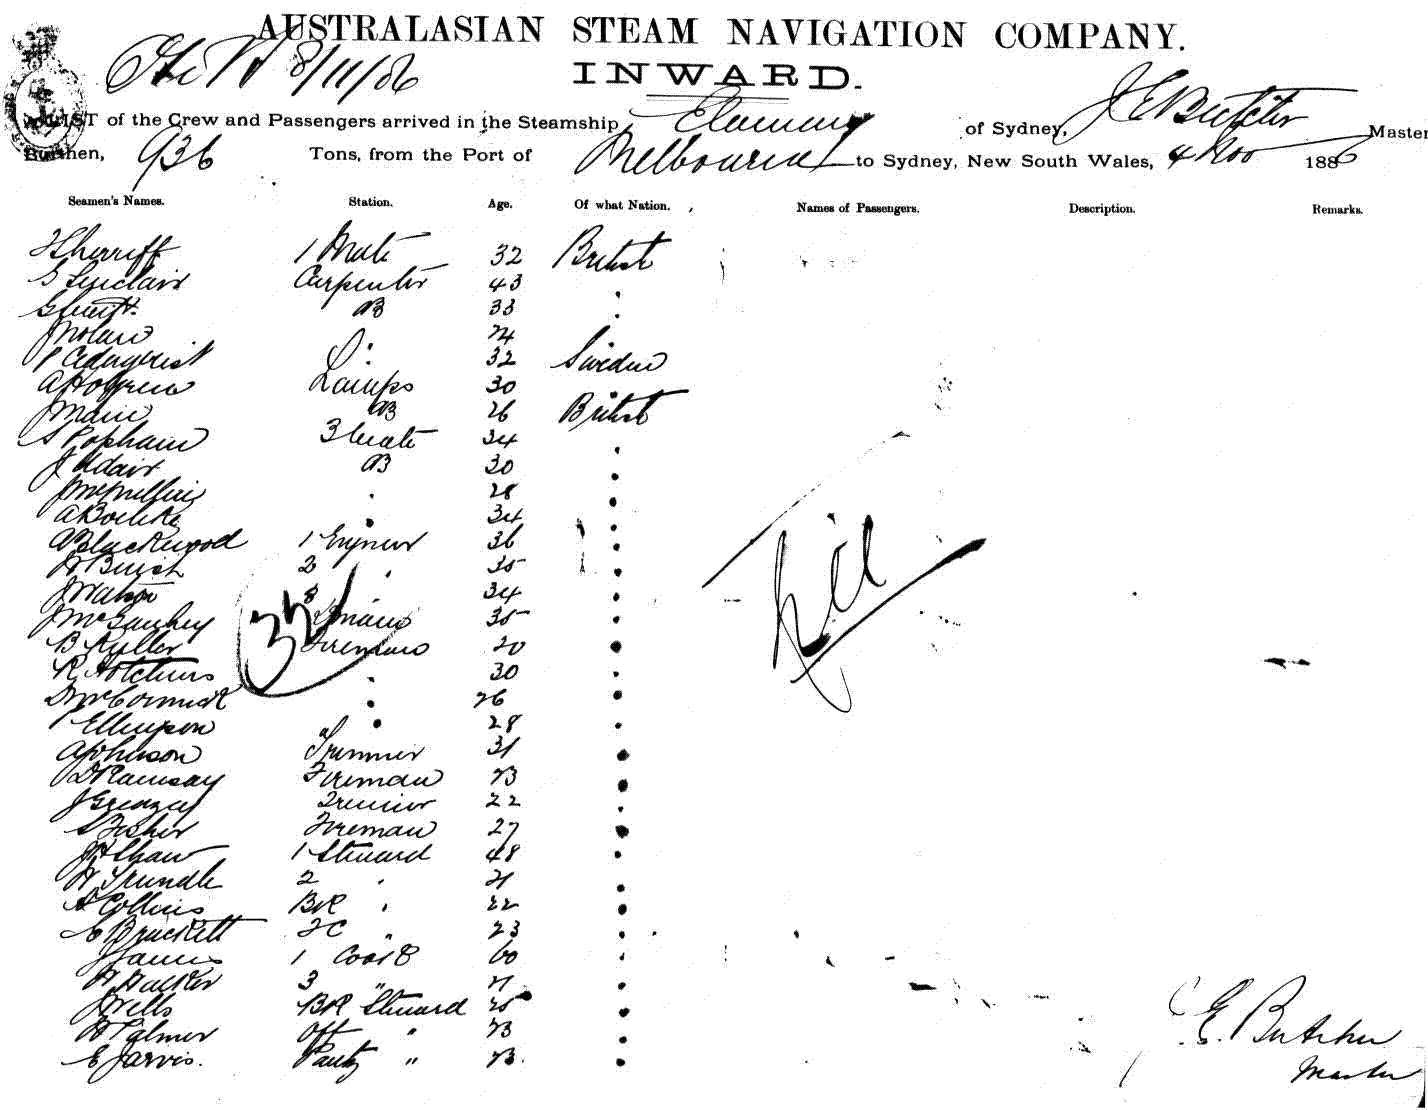 AUSTRALASIAN STEAM NAVIGATION COMPANY.
8/11/86
INWARD.
LIST of the Crew and Passengers arrived in the Steamship of Sydney, J E Butcher Master
Burthen, 936 Tons, from the Port of Melbourne to Sydney, New South Wales, 4 Nov 1886
Seamen's Names. Station. Age. Of what Nation. Names of Passengers. Description. Remarks.
Sherriff 1 Mate 32 British
G Sinclair Carpenter 43 "
AB 33 "
J Nolan 24
32 Sweden
A Holgren Lamps 30 "
J Main AB 26 British
S Popham 2 Mate 34 "
J Adair AB 30 "
" 28 "
" 34 "
A Blackwood 1 Engineer 36 "
2 " 35 "
J Watson 3 34 "
J McGaughey 35 "
B Fuller Fireman 20 "
R Hotchins " 30 "
D McCormick " 26 "
P Ellingson " 28 "
A Johnson Trimmer 31 "
D Ramsay Fireman 23 "
J Trimmer 22 "
S Fisher Fireman 27 "
J H Shaw 1 Steward 48 "
H Trundle 2 " 21 "
A Collins BR " 22 "
E Brackett FC " 23 "
James 1 Cook 60 "
H Walker 3 " 21 "
J Wells BR Steward 25 "
H Palmer Off " 23 "
E Jarvis. Pantry " 23. "
32
Nil
J E Butcher
Master